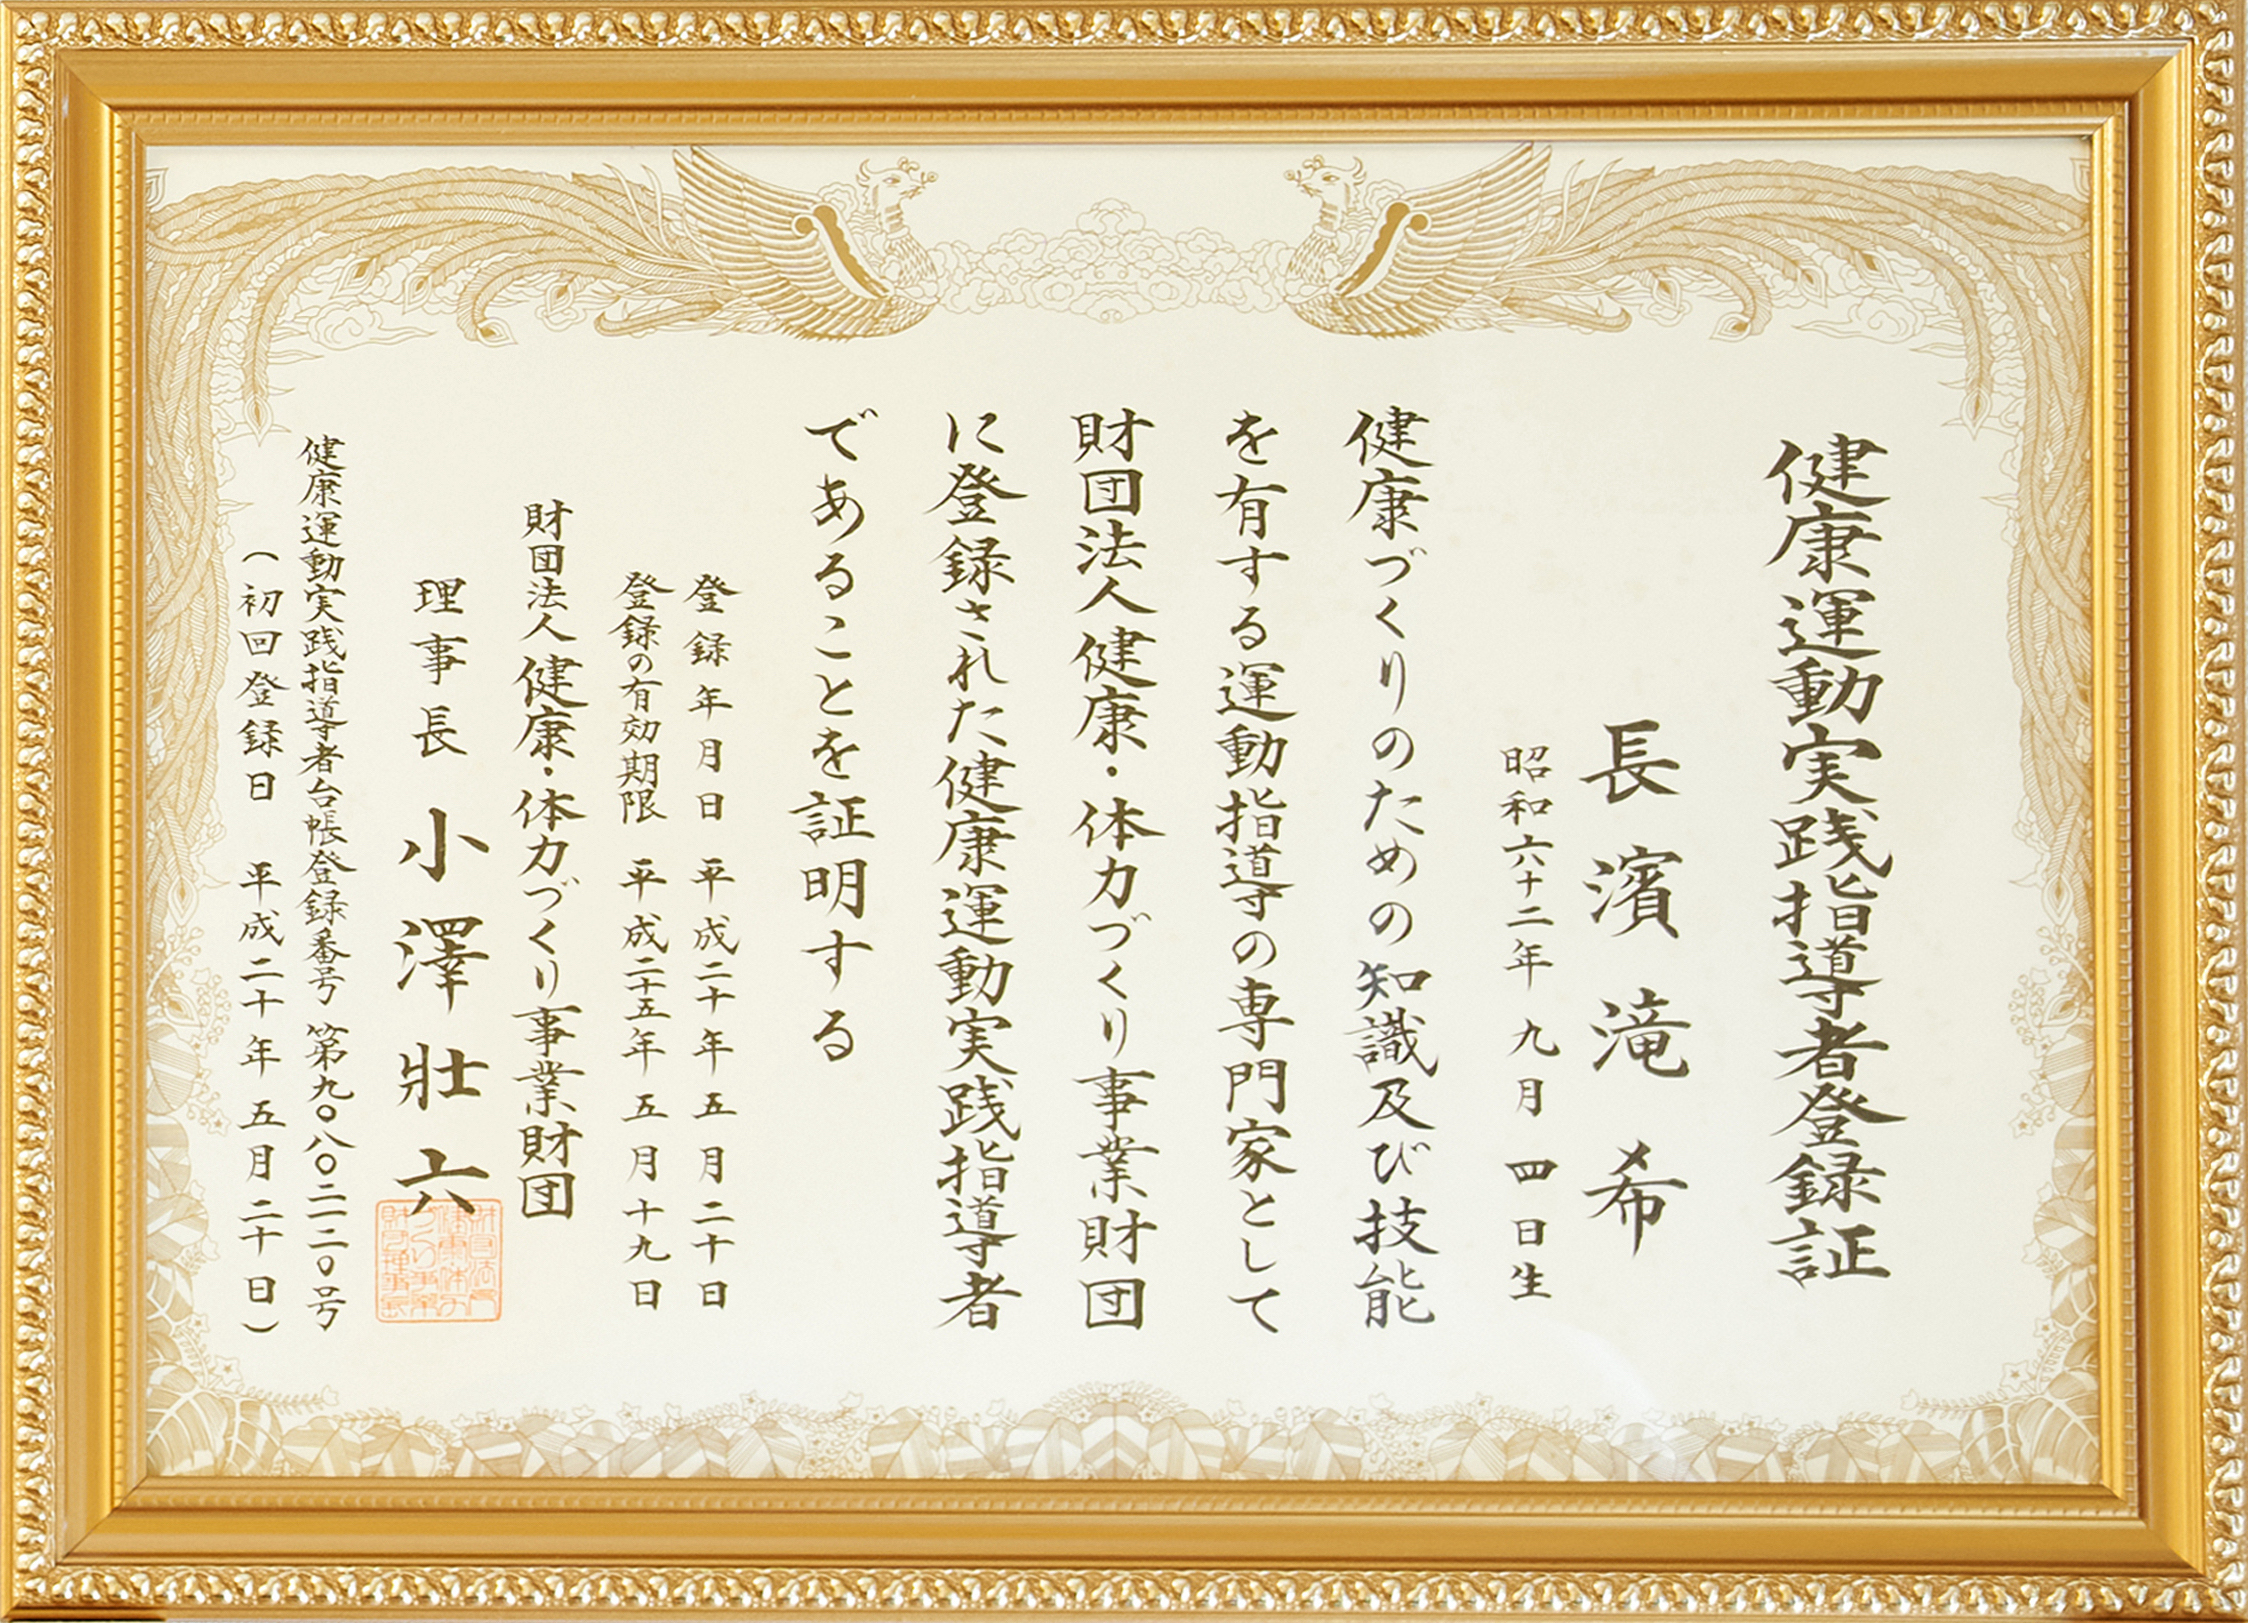 健康運動実践指導者登録証
長濱滝希
昭和六十二年九月四日生
健康づくりのための知識及び技能
を有する運動指導の専門家として
財団法人健康・体力づくり事業財団
に登録された健康運動実践指導者
であることを証明する
登録年月日 平成二十年五月二十日
登録の有効期限 平成二十五年五月十九日
財団法人健康・体力づくり事業財団
理事長 小澤壯六
健康運動実践指導者台帳登録番号 第九〇八〇二二二〇号
(初回登録日 平成二十年五月二十日)